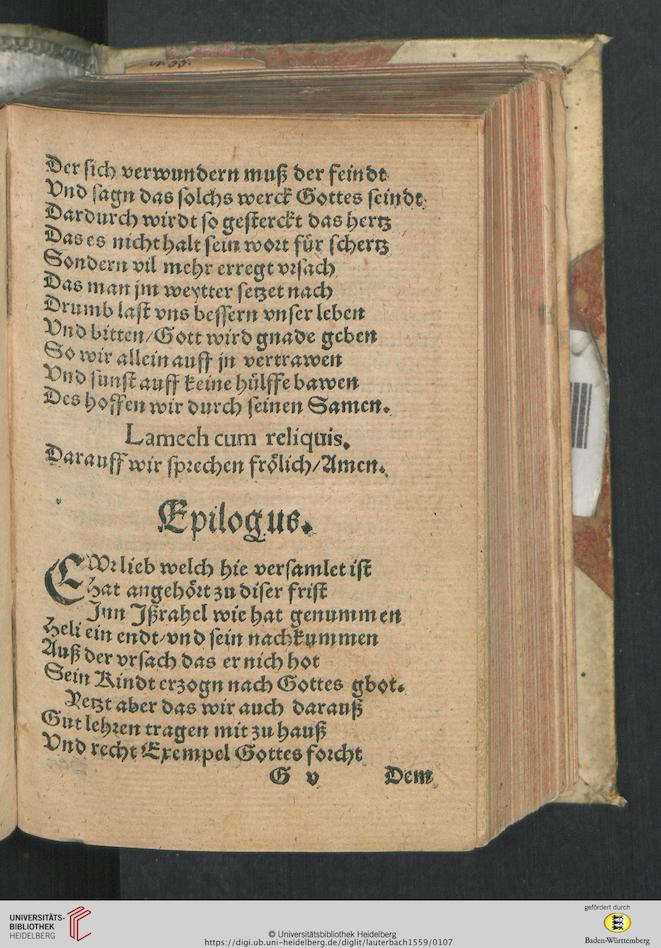 Der sich verwundern muß der feindt
Vnd sagn das solchs werck Gottes seindt
Dardurch wirdt so gesterckt das hertz
Das es nicht halt sein wort für schertz
Sondern vil mehr erregt vrsach
Das man jm weytter setzet nach
Drumb last vns bessern vnser leben
Vnd bitten/Gott wird gnade geben
So wir allein auff jn vertrawen
Vnd sunst auff keine hülffe bawen
Des hoffen wir durch seinen Samen.
Lamech cum reliquis.
Darauff wir sprechen frölich/Amen.
Epilogus.
EWr lieb welch hie versamlet ist
Hat angehört zu diser frist
Inn Jßrahel wie hat genummen
Heli ein endt/vnd sein nachkummen
Auß der vrsach das er nich hot
Sein Kindt erzogn nach Gottes gbot.
Yetzt aber das wir auch darauß
Gut lehren tragen mit zu hauß
Vnd recht Exempel Gottes forcht
G v Dem
UNIVERSITÄTS-
BIBLIOTHEK
HEIDELBERG
© Universitätsbibliothek Heidelberg
https://digi.ub.uni-heidelberg.de/diglit/lauterbach1559/0107
gefördert durch
Baden-Württemberg